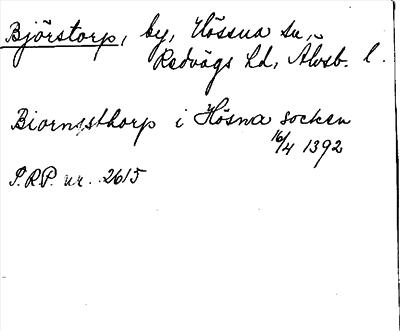 Björstorp, by, Hössna sn,
Redvägs hd, Älvsb. l.
Biornssthorp i Hösna socken
16/4 1392
S.R.P. nr. 2615